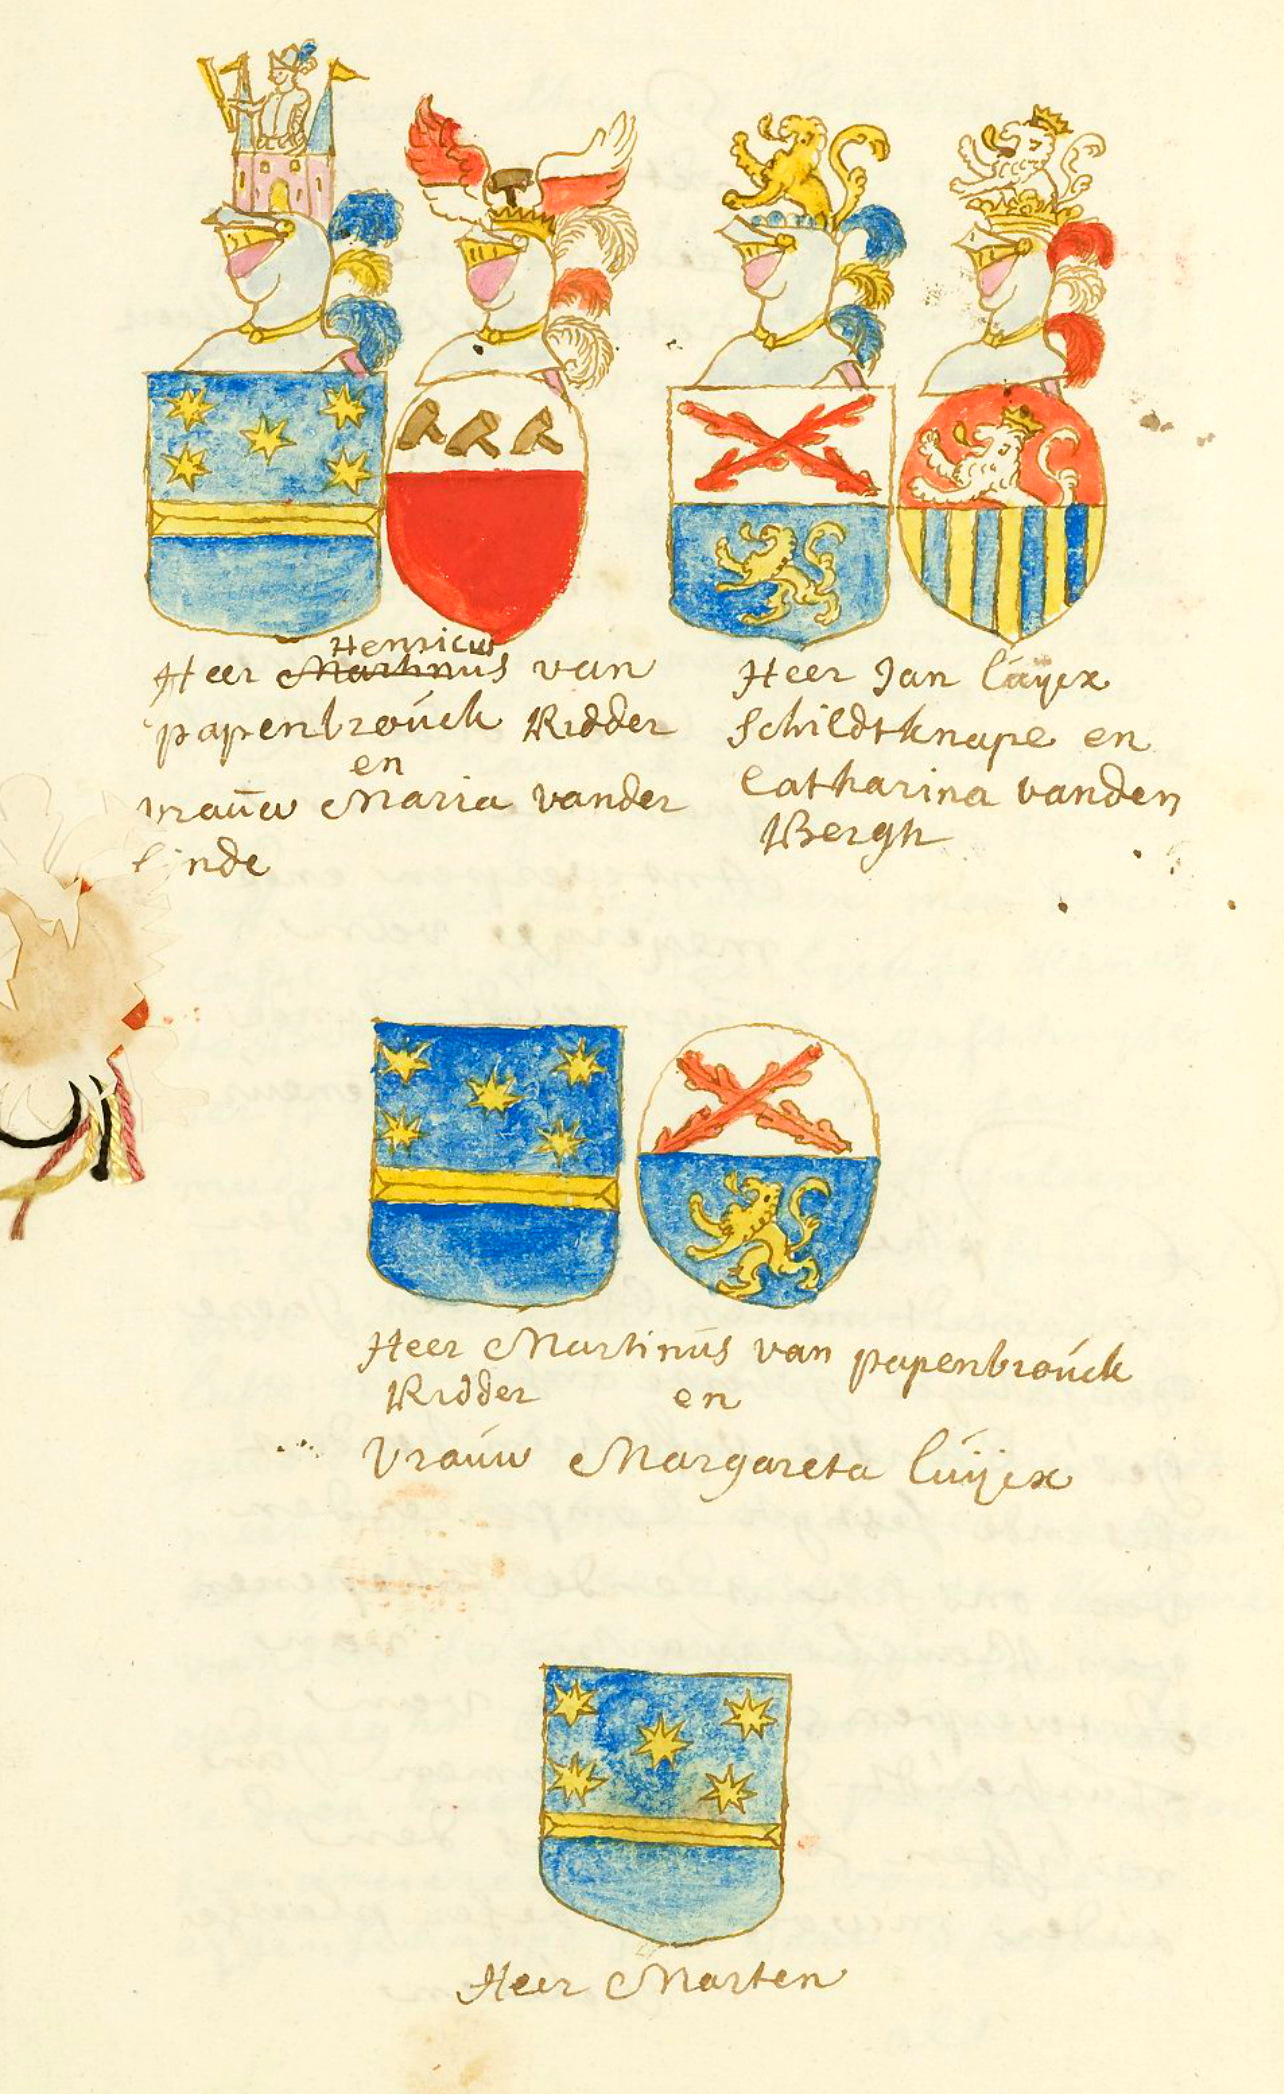 Henricus
Heer Martinus van
papenbroúck Ridder
en
vrauw Maria vander
linde
Heer Jan lúycx
Schildtknape en
Catharina vanden
Bergh
Heer Martinus van papenbroúck
Ridder en
Vroúw Margareta lúijcx
Heer Marten